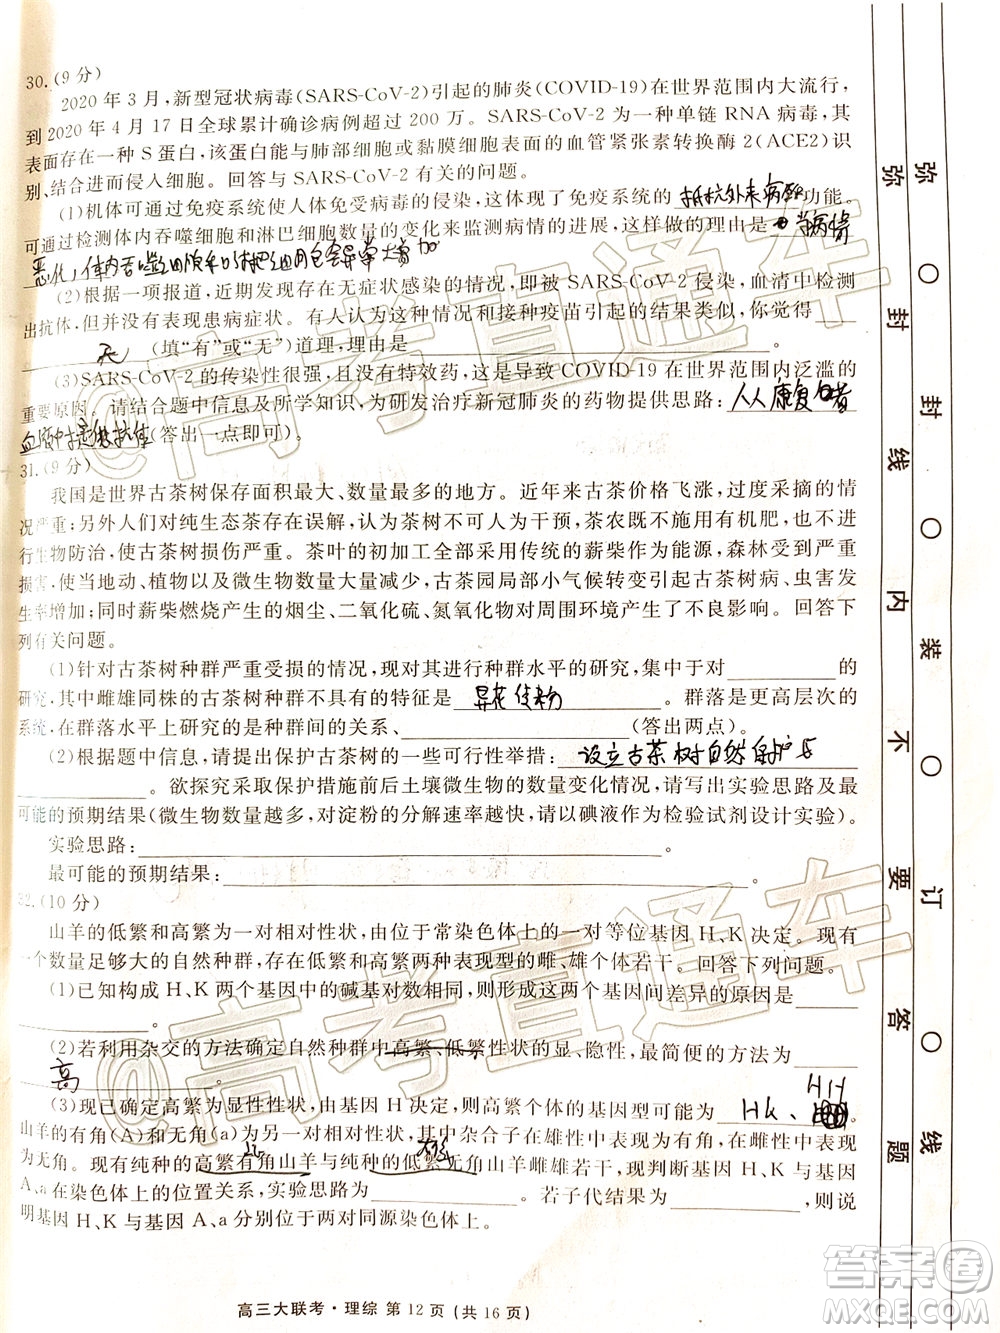 30.(9分)
2020年3月,新型冠状病毒(SARS-CoV-2)引起的肺炎(COVID-19)在世界范围内大流行,
到2020年4月17日全球累计确诊病例超过200万。SARS-CoV-2为一种单链RNA病毒,其
表面存在一种S蛋白,该蛋白能与肺部细胞或黏膜细胞表面的血管紧张素转换酶2(ACE2)识
别、结合进而侵入细胞。回答与SARS-CoV-2有关的问题。
(1)机体可通过免疫系统使人体免受病毒的侵染,这体现了免疫系统的抵抗外来病原功能。
可通过检测体内吞噬细胞和淋巴细胞数量的变化来监测病情的进展,这样做的理由是当病情
恶化,体内吞噬细胞和淋巴细胞会异常增加
(2)根据一项报道,近期发现存在无症状感染的情况,即被SARS-CoV-2侵染,血清中检测
出抗体,但并没有表现患病症状。有人认为这种情况和接种疫苗引起的结果类似,你觉得
无(填“有”或“无”)道理,理由是。
(3)SARS-CoV-2的传染性很强,且没有特效药,这是导致COVID-19在世界范围内泛滥的
重要原因。请结合题中信息及所学知识,为研发治疗新冠肺炎的药物提供思路:从康复患者
血液中提取抗体(答出一点即可)。
31.(9分)
我国是世界古茶树保存面积最大、数量最多的地方。近年来古茶树价格飞涨,过度采摘的情
况严重;另外人们对纯生态茶存在误解,认为茶树不能施肥,茶农既不施用有机肥,也不进
行生物防治,使古茶树损伤严重。茶叶的初加工全部采用传统的薪柴作为能源,森林受到严重
损害,使当地动、植物以及微生物数量大量减少,古茶园局部小气候转变引起古茶树病、虫害发
生率增加;同时薪柴燃烧产生的烟尘、二氧化硫、氮氧化物对周围环境产生了影响。回答下
列有关问题。
(1)针对古茶树种群严重受损的情况,现对其进行种群水平的研究,集中于对的
研究,其中雌雄同株的古茶树种群不具有的特征是异花传粉。群落是更高层次的
系统,在群落水平上研究的是种群间的关系、(答出两点)。
(2)根据题中信息,请提出保护古茶树的一些可行性举措:设立古茶树自然保护区
。欲探究采取保护措施前后土壤微生物的数量变化情况,请写出实验思路及最
可能的预期结果(微生物数量越多,对淀粉的分解速率越快,请以碘液作为检验试剂设计实验)。
实验思路:。
最可能的预期结果:。
32.(10分)
山羊的低繁和高繁为一对相对性状,由位于常染色体上的一对等位基因H、K决定。现有
一个数量足够大的自然种群,存在低繁和高繁两种表现型的雌、雄个体若干。回答下列问题。
(1)已知构成H、K两个基因中的碱基对数相同,则这两个基因间差异的原因是
。
(2)若利用杂交的方法确定自然种群中高繁、低繁性状的显、隐性,最简便的方法为
高。
(3)现已确定高繁为显性性状,由基因H决定,则高繁个体的基因型可能为HK、HH。
山羊的有角(A)和无角(a)为另一对相对性状,其中杂合子在雄性中表现为有角,在雌性中表现
为无角。现有纯种的高繁有角山羊与纯种的低繁无角山羊雌雄若干,现判断基因H、K与基因
A、a在染色体上的位置关系,实验思路为。若子代结果为,则说
明基因H、K与基因A、a分别位于两对同源染色体上。
高三大联考·理综 第12页(共16页)
弥
封
线
内
不
要
答
题
弥
封
装
订
线
@高考直通车
@高考直通车
答案圈
MXQE.COM